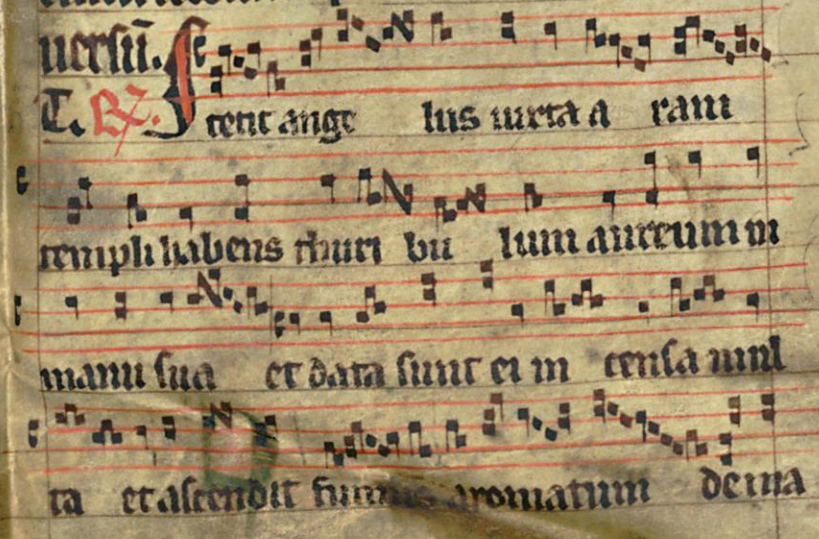 uersū.
T. R. Stetit ange lus iuxta a ram
templi habens thuri bu lum aureum in
manu sua et data sunt ei in censa mul
ta et ascendit fumus aromatum de ma